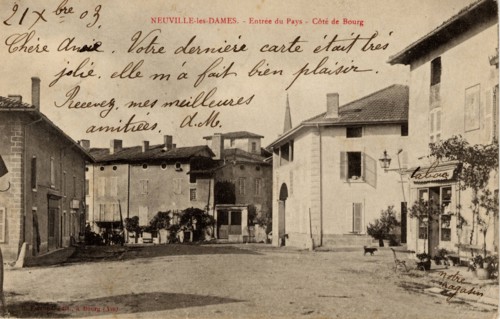 21 Xbre 03
NEUVILLE-les-DAMES. - Entrée du Pays - Côté de Bourg
Chère Amie. Votre dernière carte était très
jolie. elle m'a fait bien plaisir.
Recevez, mes meilleures
amitiées. D.M.
notre
magasin